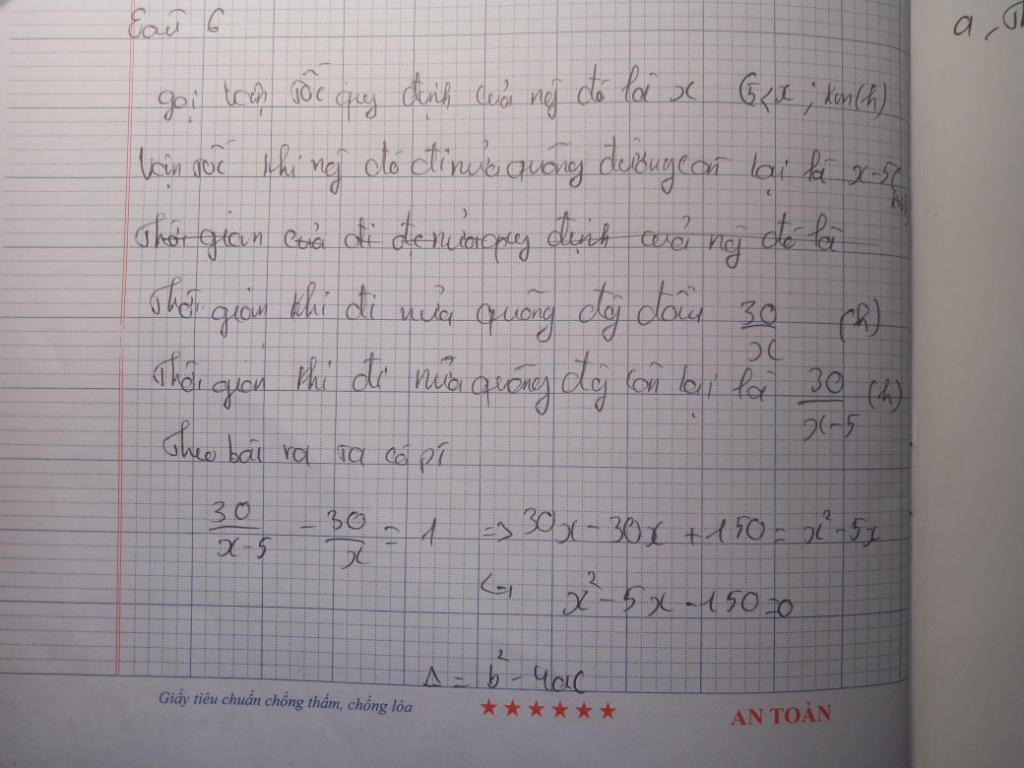 Câu 6
a, Th
gọi vận tốc quy định của ng đó là x (5<x ; km/h)
Vận tốc khi ng đó đi nửa quãng đường còn lại là x-5(km/h)
Thời gian của đi đc nửa quy định của ng đó là
Thời gian khi đi nửa quãng đg đầu 30/x (h)
Thời gian khi đi nửa quãng đg còn lại là 30/x-5 (h)
Theo bài ra ta có pt
30/x-5 - 30/x = 1 => 30x - 30x + 150 = x² - 5x
<=> x² - 5x - 150 = 0
Δ = b² - 4ac
Giấy tiêu chuẩn chống thấm, chống lóa ★★★★★★ AN TOÀN